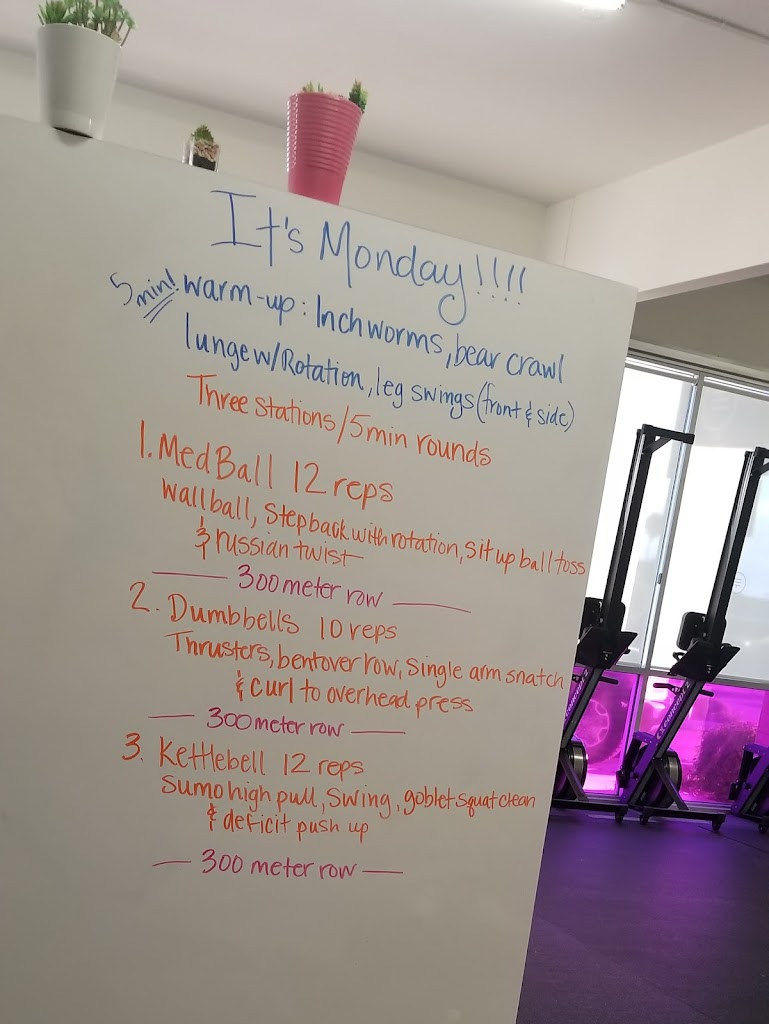 It's Monday!!!!
5 min! warm-up: Inchworms, bear crawl
lunge w/Rotation, leg swings (front & side)
Three stations/5min rounds
1. MedBall 12 reps
wallball, Stepback with rotation, sit up ball toss
& russian twist
300 meter row
2. Dumbbells 10 reps
Thrusters, bentover row, single arm snatch
& curl to overhead press
300 meter row
3. Kettlebell 12 reps
Sumo high pull, Swing, goblet squat clean
& deficit push up
300 meter row